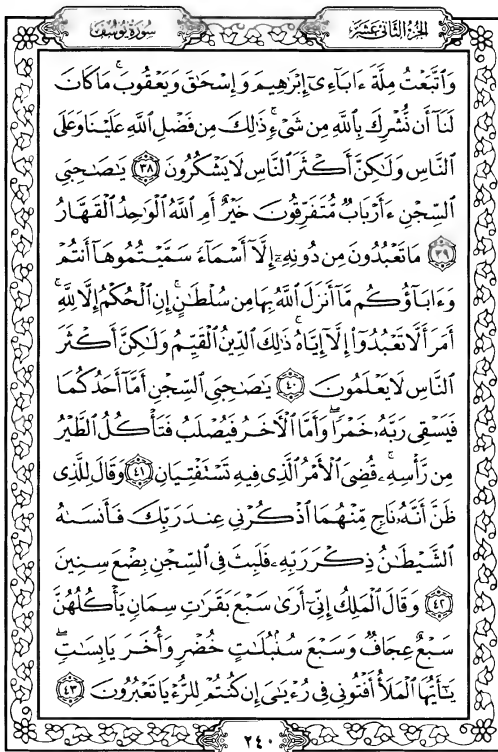 سُورَةُ يُوسُفَ
الجُزْءُ الثَّانِي عَشَرَ
وَاتَّبَعْتُ مِلَّةَ ءَابَآءِىٓ إِبْرَٰهِيمَ وَإِسْحَٰقَ وَيَعْقُوبَۚ مَاكَانَ
لَنَآ أَن نُّشْرِكَ بِٱللَّهِ مِن شَىْءٍۚ ذَٰلِكَ مِن فَضْلِ ٱللَّهِ عَلَيْنَا وَعَلَى
ٱلنَّاسِ وَلَٰكِنَّ أَكْثَرَ ٱلنَّاسِ لَا يَشْكُرُونَ ٣٨ يَٰصَٰحِبَىِ
ٱلسِّجْنِ ءَأَرْبَابٌ مُّتَفَرِّقُونَ خَيْرٌ أَمِ ٱللَّهُ ٱلْوَٰحِدُ ٱلْقَهَّارُ
٣٩ مَا تَعْبُدُونَ مِن دُونِهِۦٓ إِلَّآ أَسْمَآءً سَمَّيْتُمُوهَآ أَنتُمْ
وَءَابَآؤُكُم مَّآ أَنزَلَ ٱللَّهُ بِهَا مِن سُلْطَٰنٍۚ إِنِ ٱلْحُكْمُ إِلَّا لِلَّهِۚ
أَمَرَ أَلَّا تَعْبُدُوٓا۟ إِلَّآ إِيَّاهُۚ ذَٰلِكَ ٱلدِّينُ ٱلْقَيِّمُ وَلَٰكِنَّ أَكْثَرَ
ٱلنَّاسِ لَا يَعْلَمُونَ ٤٠ يَٰصَٰحِبَىِ ٱلسِّجْنِ أَمَّآ أَحَدُكُمَا
فَيَسْقِى رَبَّهُۥ خَمْرًاۖ وَأَمَّا ٱلْءَاخَرُ فَيُصْلَبُ فَتَأْكُلُ ٱلطَّيْرُ
مِن رَّأْسِهِۦۚ قُضِىَ ٱلْأَمْرُ ٱلَّذِى فِيهِ تَسْتَفْتِيَانِ ٤١ وَقَالَ لِلَّذِى
ظَنَّ أَنَّهُۥ نَاجٍ مِّنْهُمَا ٱذْكُرْنِى عِندَ رَبِّكَ فَأَنسَىٰهُ
ٱلشَّيْطَٰنُ ذِكْرَ رَبِّهِۦ فَلَبِثَ فِى ٱلسِّجْنِ بِضْعَ سِنِينَ
٤٢ وَقَالَ ٱلْمَلِكُ إِنِّىٓ أَرَىٰ سَبْعَ بَقَرَٰتٍ سِمَانٍ يَأْكُلُهُنَّ
سَبْعٌ عِجَافٌ وَسَبْعَ سُنۢبُلَٰتٍ خُضْرٍ وَأُخَرَ يَابِسَٰتٍۖ
يَٰٓأَيُّهَا ٱلْمَلَأُ أَفْتُونِى فِى رُءْيَٰىَ إِن كُنتُمْ لِلرُّءْيَا تَعْبُرُونَ ٤٣
٢٤٠